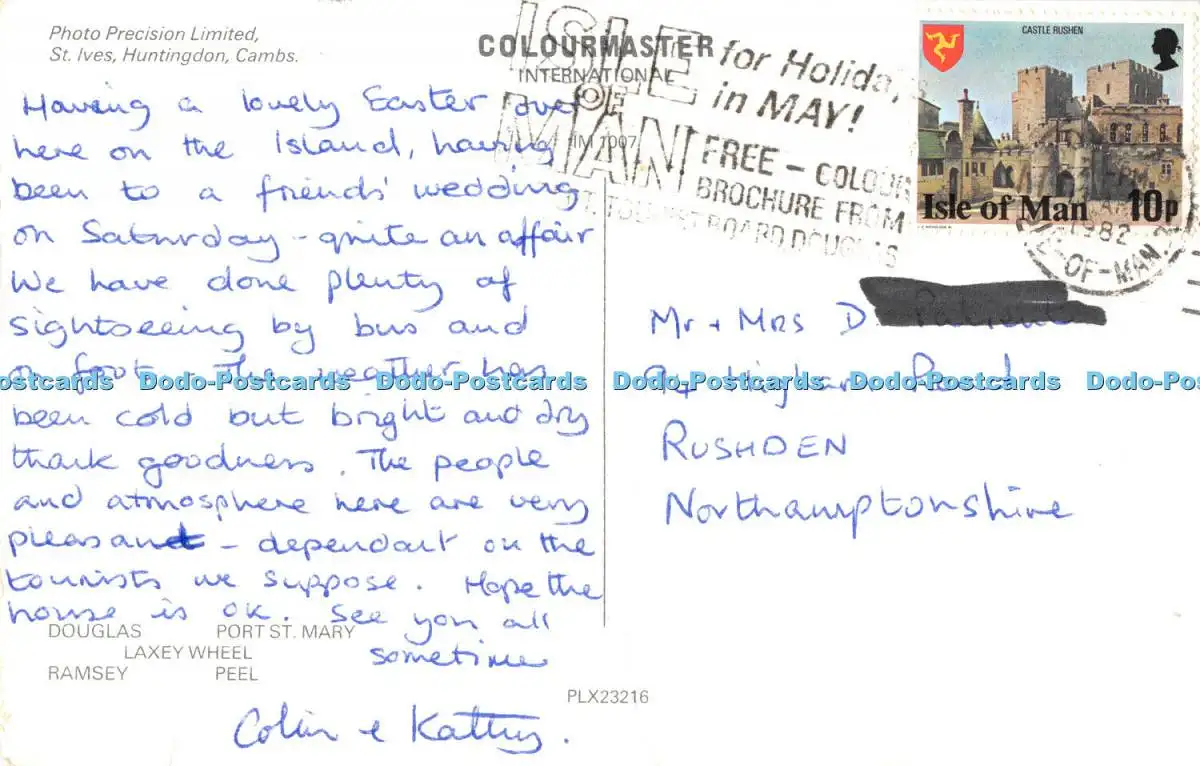 Photo Precision Limited,
St. Ives, Huntingdon, Cambs.
COLOURMASTER
INTERNATIONAL
IM 1007
ISLE OF MAN
for Holidays
in MAY!
FREE - COLOUR
BROCHURE FROM
TOURIST BOARD DOUGLAS
CASTLE RUSHEN
Isle of Man 10p
1982
ISLE-OF-MAN
Having a lovely Easter over
here on the Island, having
been to a friends' wedding
on Saturday - quite an affair
We have done plenty of
sightseeing by bus and
on foot. The weather has
been cold but bright and dry
thank goodness. The people
and atmosphere here are very
pleasant - dependant on the
tourists we suppose. Hope the
house is OK. See you all
sometime
Colin & Kathy.
Mr + Mrs D
Road
RUSHDEN
Northamptonshire
Dodo-Postcards Dodo-Postcards Dodo-Postcards Dodo-Postcards Dodo-Postcards Dodo-Pos
DOUGLAS PORT ST. MARY
LAXEY WHEEL
RAMSEY PEEL
PLX23216